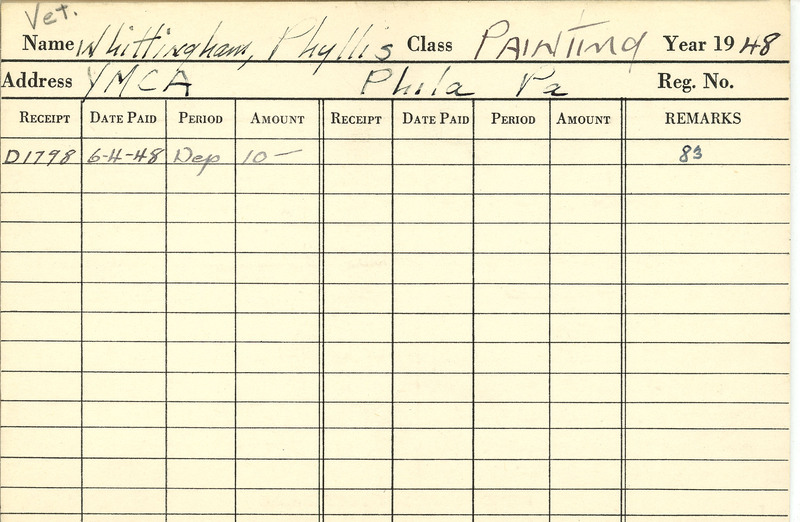 Vet.
Name Whittingham, Phyllis Class PAINTING Year 1948
Address YMCA Phila Pa Reg. No.
RECEIPT DATE PAID PERIOD AMOUNT RECEIPT DATE PAID PERIOD AMOUNT REMARKS
D1798 6-4-48 Dep 10— 83